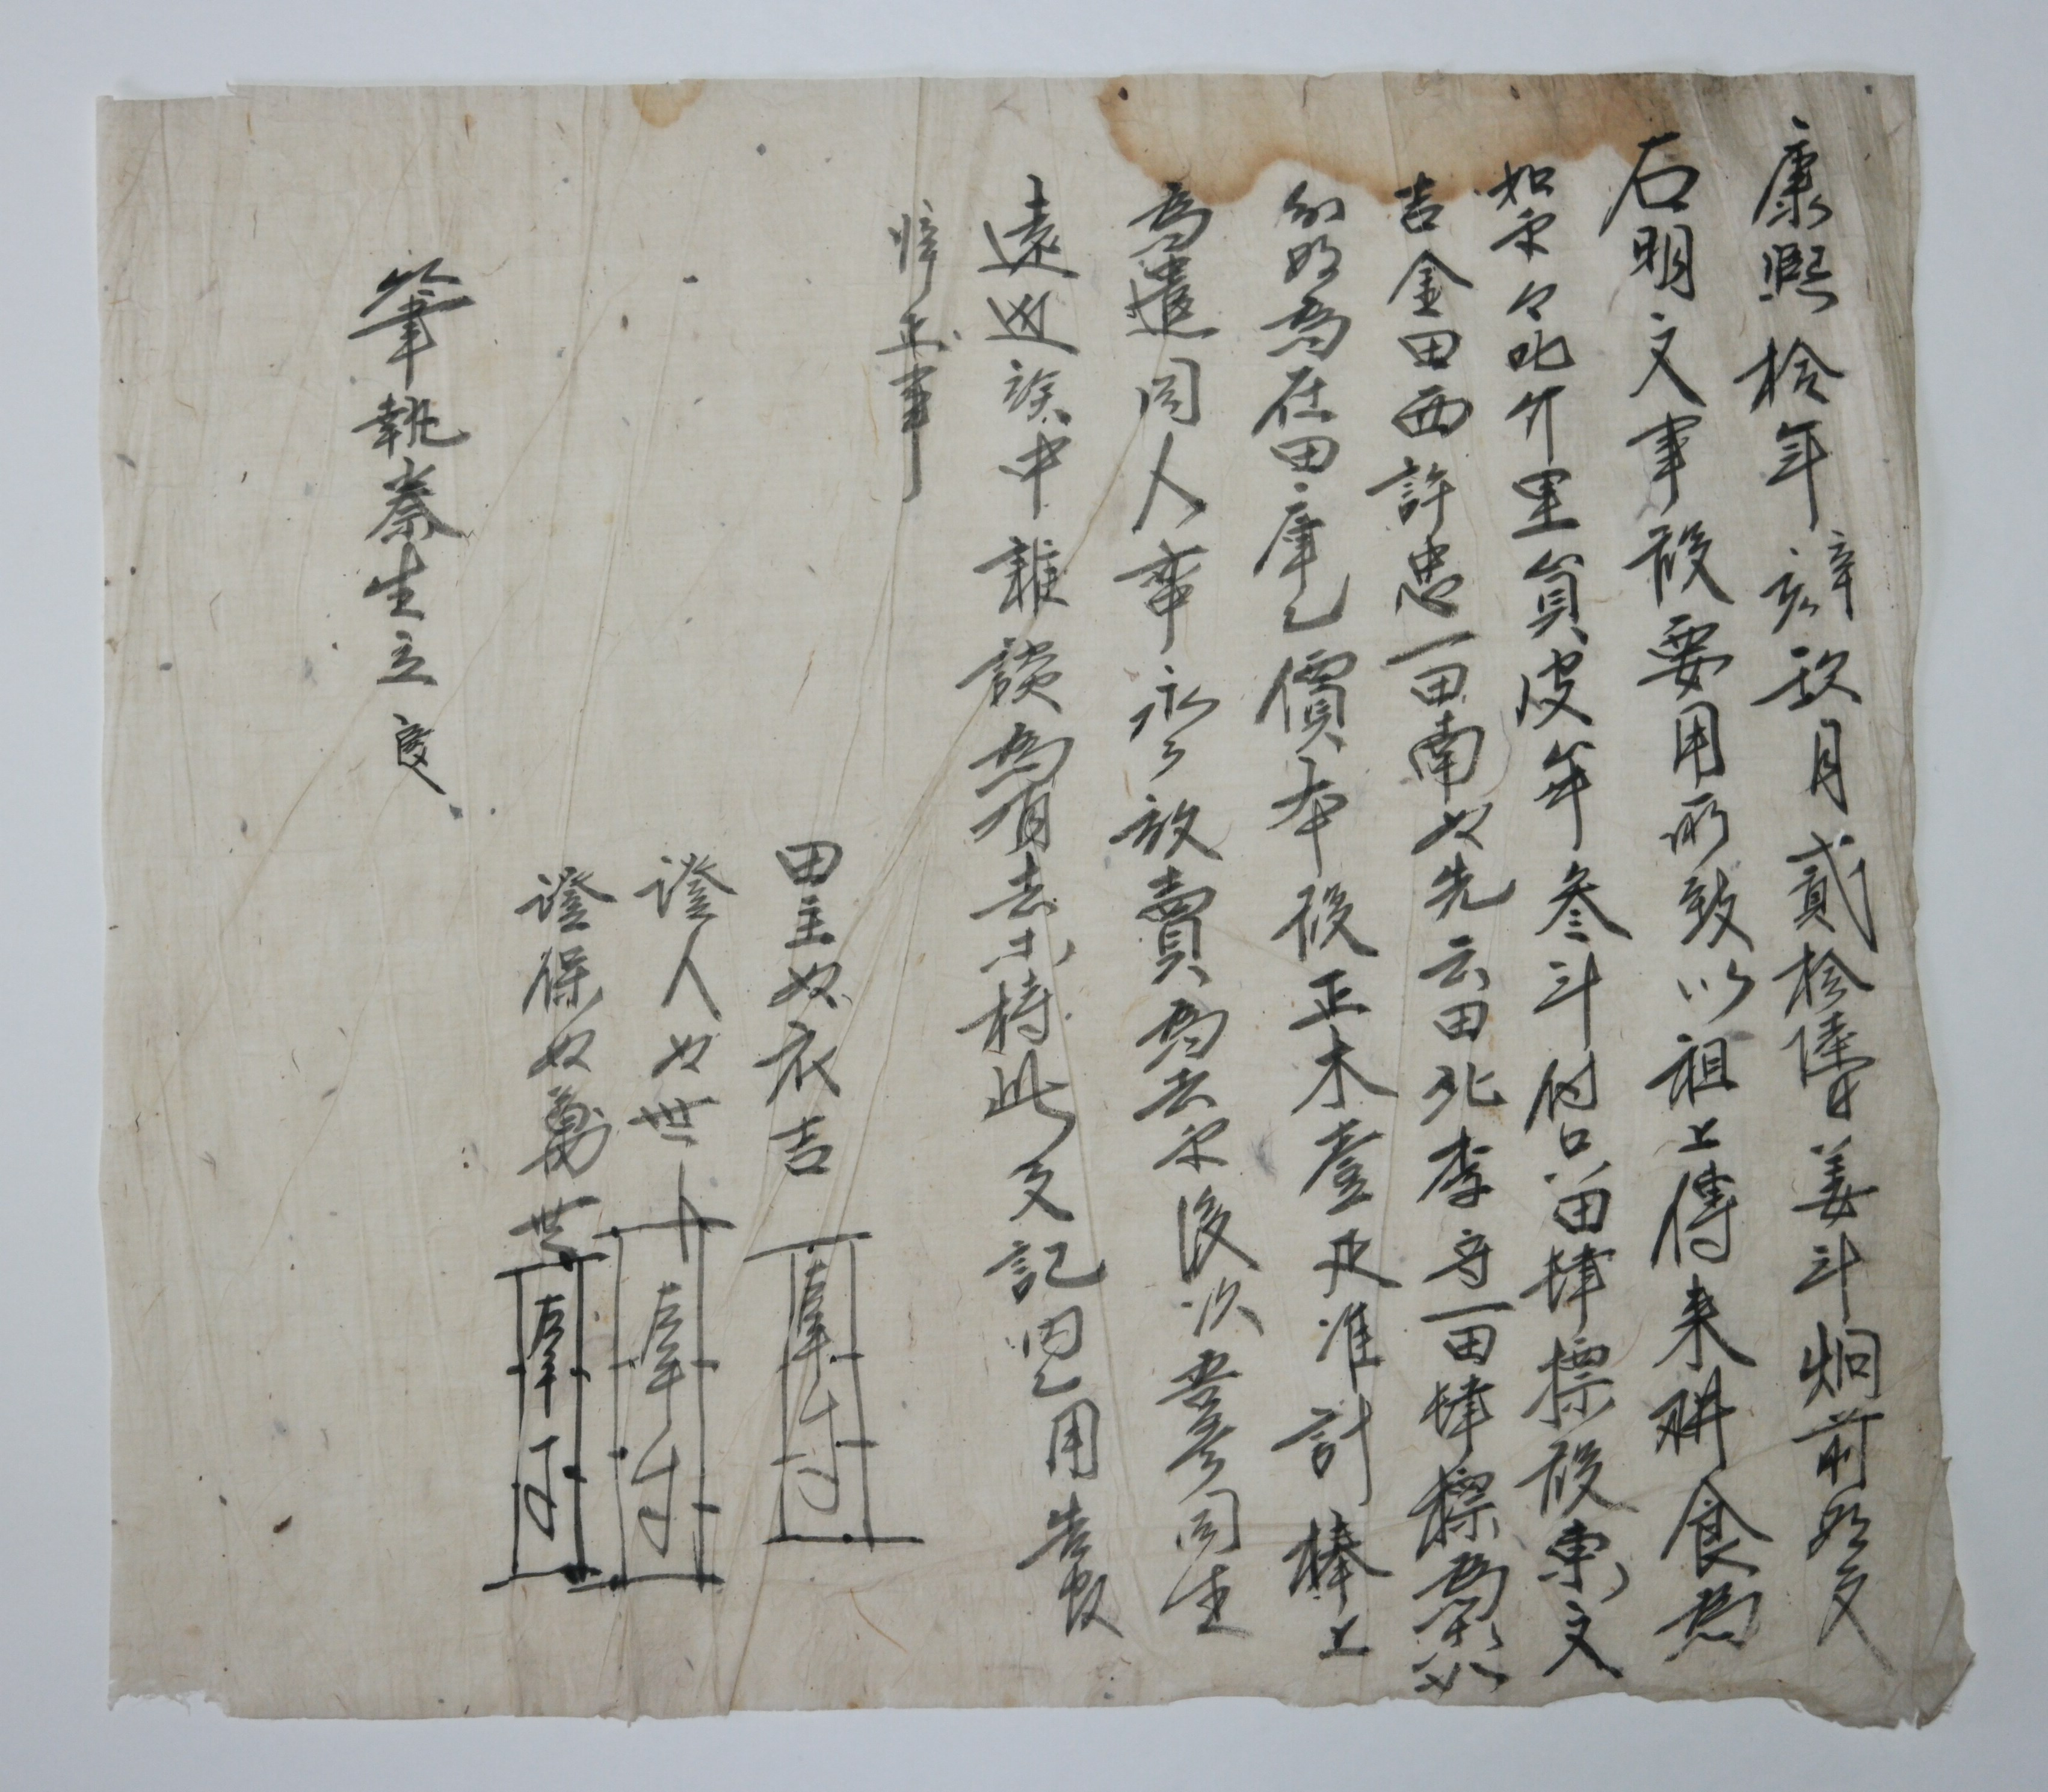 康熙拾年辛亥玖月貳拾陸日姜斗炯前明文
右明文事段要用所致以祖上傳来耕食爲
如乎叱介里員皮牟叁斗付只田肆標段東文
吉金田西許忠一田南奴先云田北李守一田肆標爲
明爲在田庫乙價本段正木壹疋准計捧上
爲遣同人率永永放賣爲去乎後次吾矣同生
遠近族中雜談爲有去等持此文記內乙用告官
卞正事
田主奴衣吉 左手寸
證人奴世卜 左手寸
證保奴勇世 左手寸
筆執秦生立